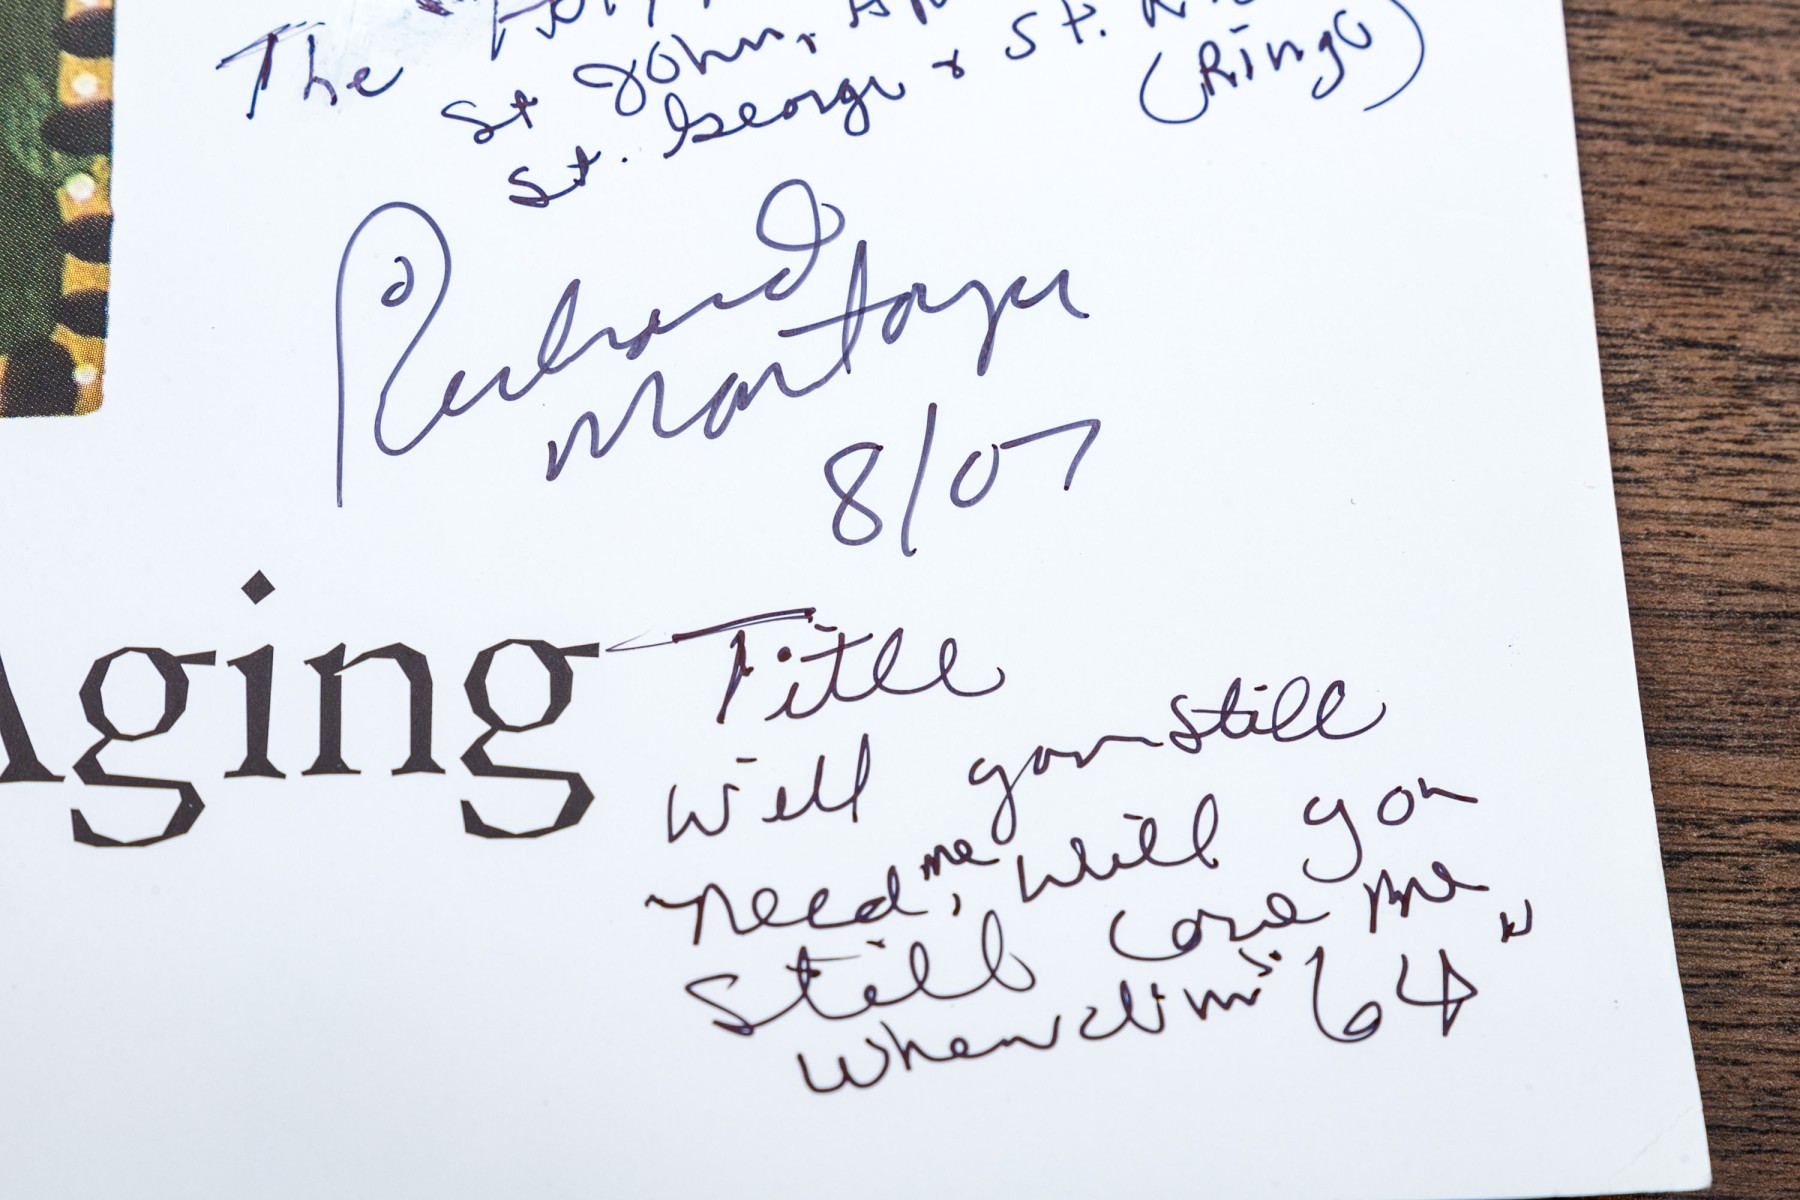 The
St John,
St. George & St.
(Ringo)
Richard
Montoya
8/07
Aging
Title
Will you still
need me, will you
still care me
when I'm "64"